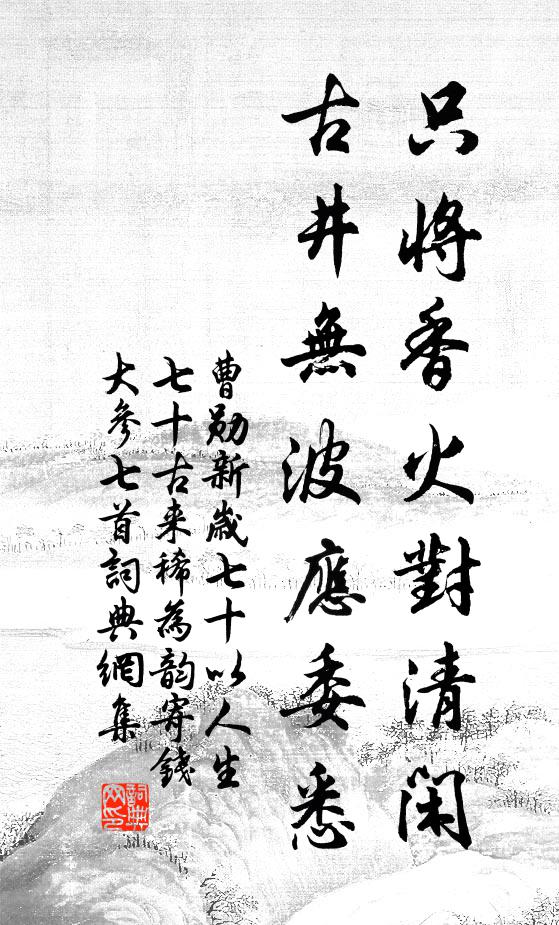 只將香火對清閑
古井無波應委悉
曹勛新歲七十以人生
七十古来稀為韵寄錢
大參七首詞典網集